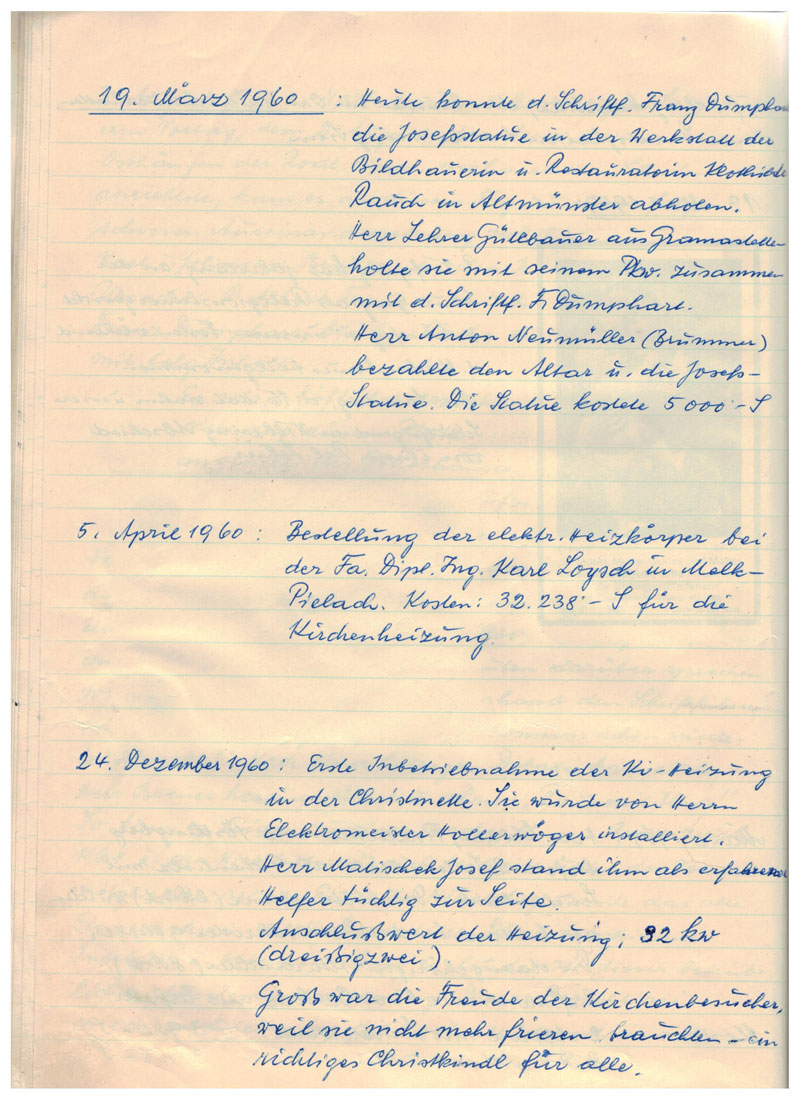 19. März 1960 : Heute konnte d. Schriftf. Franz Dumphart
die Josefsstatue in der Werkstatt der
Bildhauerin u. Restauratorin Klothilde
Rauch in Altmünster abholen.
Herr Lehrer Güllbauer aus Gramastetten
holte sie mit seinem Pkw. zusammen
mit d. Schriftf. F. Dumphart.
Herr Anton Neumüller (Brummer)
bezahlte den Altar u. die Josefs-
Statue. Die Statue kostete 5 000·- S
5. April 1960 : Bestellung der elektr. Heizkörper bei
der Fa. Dipl. Ing. Karl Loysch in Melk-
Pielach. Kosten: 32.238·- S für die
Kirchenheizung.
24. Dezember 1960 : Erste Inbetriebnahme der Ki-Heizung
in der Christmette. Sie wurde von Herrn
Elektromeister Hollerwöger installiert.
Herr Matischek Josef stand ihm als erfahrener
Helfer tüchtig zur Seite.
Anschlußwert der Heizung; 32 kw
(dreißigzwei).
Groß war die Freude der Kirchenbesucher,
weil sie nicht mehr frieren brauchten - ein
richtiges Christkindl für alle.